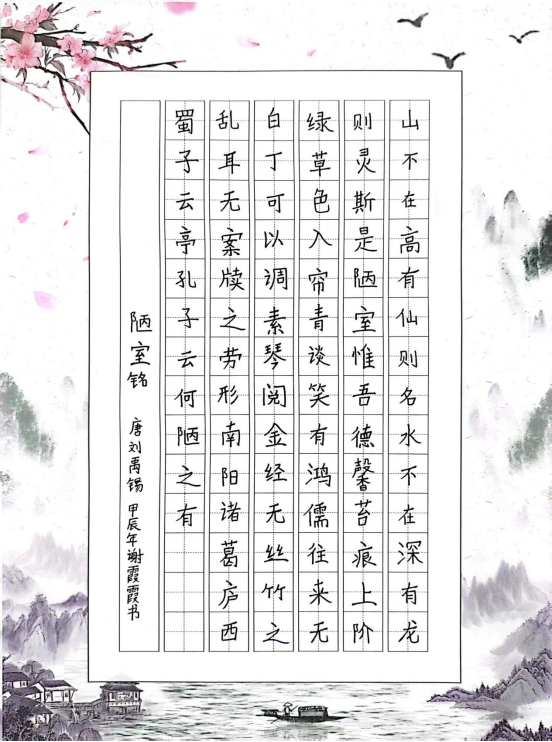 山不在高有仙则名水不在深有龙
则灵斯是陋室惟吾德馨苔痕上阶
绿草色入帘青谈笑有鸿儒往来无
白丁可以调素琴阅金经无丝竹之
乱耳无案牍之劳形南阳诸葛庐西
蜀子云亭孔子云何陋之有
陋室铭 唐刘禹锡 甲辰年谢霞霞书